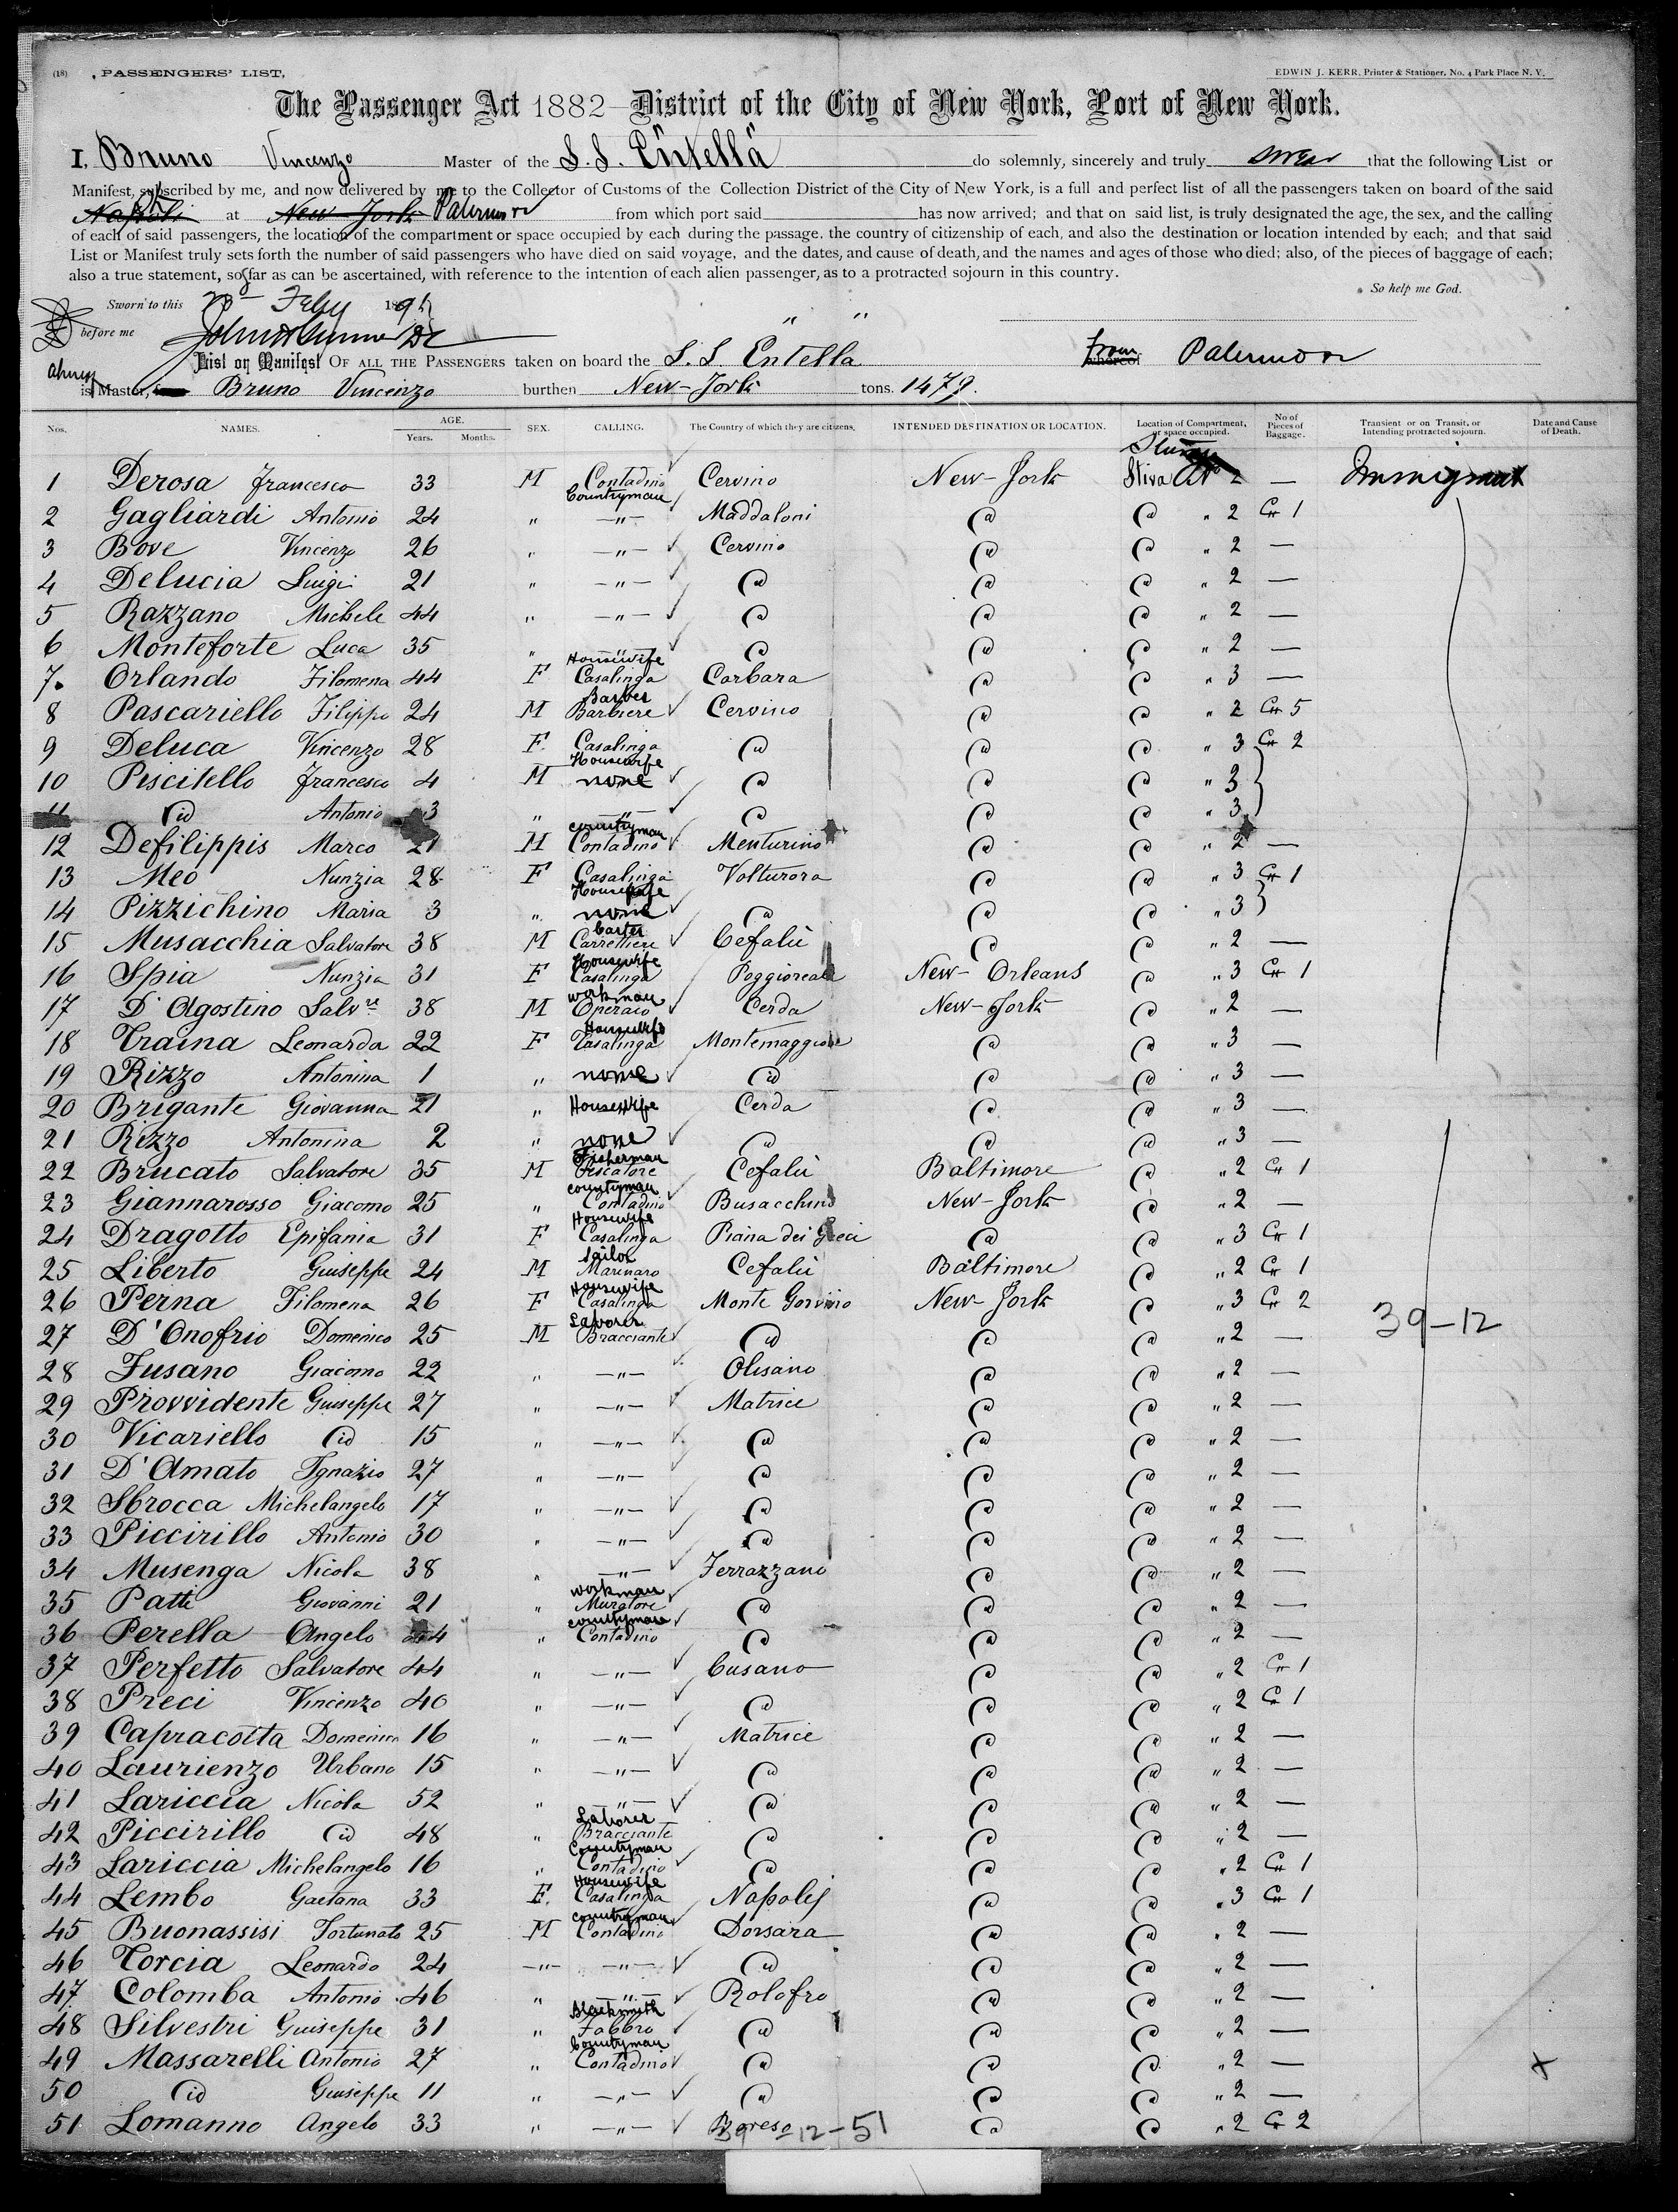 (18) PASSENGERS' LIST. EDWIN J. KERR, Printer & Stationer, No. 4 Park Place N. Y.
The Passenger Act 1882 — District of the City of New York, Port of New York.
I, Bruno Vincenzo Master of the S.S. "Entella" do solemnly, sincerely and truly swear that the following List or
Manifest, subscribed by me, and now delivered by me to the Collector of Customs of the Collection District of the City of New York, is a full and perfect list of all the passengers taken on board of the said
Napoli at New-York Palermo from which port said has now arrived; and that on said list, is truly designated the age, the sex, and the calling
of each of said passengers, the location of the compartment or space occupied by each during the passage. the country of citizenship of each, and also the destination or location intended by each; and that said
List or Manifest truly sets forth the number of said passengers who have died on said voyage, and the dates, and cause of death, and the names and ages of those who died; also, of the pieces of baggage of each;
also a true statement, so far as can be ascertained, with reference to the intention of each alien passenger, as to a protracted sojourn in this country.
So help me God.
Sworn to this Feby 189
before me
List or Manifest OF ALL THE PASSENGERS taken on board the S.S Entella From whereof Palermo
is Master, Bruno Vincenzo burthen New-York tons. 1479.
Nos. NAMES. AGE. Years. Months. SEX. CALLING. The Country of which they are citizens. INTENDED DESTINATION OR LOCATION. Location of Compartment, or space occupied. No of Pieces of Baggage. Transient or on Transit, or Intending protracted sojourn. Date and Cause of Death.
1 Derosa Francesco 33 M Contadino Countryman Cervino New-York Stiva No 2 — Immigrant
2 Gagliardi Antonio 24 " —"— Maddaloni Id Id " 2 Cr 1
3 Bove Vincenzo 26 " —"— Cervino Id Id " 2 —
4 Delucia Luigi 21 " —"— Id Id Id " 2 —
5 Razzano Michele 44 " —"— Id Id Id " 2 —
6 Monteforte Luca 35 " —"— Id Id Id " 2 —
7. Orlando Filomena 44 F Housewife Casalinga Carbara Id Id " 3 —
8 Pascariello Filippo 24 M Barber Barbiere Cervino Id Id " 2 Cr 5
9 Deluca Vincenzo 28 F. Casalinga Housewife Id Id Id " 3 Cr 2
10 Piscitello Francesco 4 M none Id Id Id " 3
11 Id Antonio 3 " —"— Id Id Id " 3
12 Defilippis Marco 21 M countryman Contadino Menturino Id Id " 2 —
13 Meo Nunzia 28 F Casalinga Housewife Volturora Id Id " 3 Cr 1
14 Pizzichino Maria 3 " none Id Id Id " 3
15 Musacchia Salvatore 38 M Carter Carrettiere Cefalù Id Id " 2 —
16 Spia Nunzia 31 F Housewife Casalinga Poggioreale New-Orleans Id " 3 Cr 1
17 D'Agostino Salvre 38 M workman Operaio Cerda New-York Id " 2 —
18 Traina Leonarda 22 F Housewife Casalinga Montemaggiore Id Id " 3 —
19 Rizzo Antonina 1 " none Id Id Id " 3 —
20 Brigante Giovanna 21 " Housewife Cerda Id Id " 3 —
21 Rizzo Antonina 2 " none Id Id Id " 3 —
22 Brucato Salvatore 35 M Fisherman Pescatore Cefalù Baltimore Id " 2 Cr 1
23 Giannarosso Giacomo 25 " countyman Contadino Busacchino New-York Id " 2 —
24 Dragotto Epifania 31 F Housewife Casalinga Piana dei Greci Id Id " 3 Cr 1
25 Liberto Giuseppe 24 M Sailor Marinaro Cefalù Baltimore Id " 2 Cr 1
26 Perna Filomena 26 F Housewife Casalinga Monte Gorvino New-York Id " 3 Cr 2
27 D'Onofrio Domenico 25 M Laborer Bracciante Id Id Id " 2 — 39-12
28 Fusano Giacomo 22 " —"— Olisano Id Id " 2 —
29 Provvidente Giuseppe 27 " —"— Matrice Id Id " 2 —
30 Vicariello Id 15 " —"— Id Id Id " 2 —
31 D'Amato Ignazio 27 " —"— Id Id Id " 2 —
32 Sbrocca Michelangelo 17 " —"— Id Id Id " 2 —
33 Piccirillo Antonio 30 " —"— Id Id Id " 2 —
34 Musenga Nicola 38 " —"— Ferrazzano Id Id " 2 —
35 Patti Giovanni 21 " workman Muratore Id Id Id " 2 —
36 Perella Angelo 44 " countyman Contadino Id Id Id " 2 —
37 Perfetto Salvatore 44 " —"— Cusano Id Id " 2 Cr 1
38 Preci Vincenzo 40 " —"— Id Id Id " 2 Cr 1
39 Capracotta Domenico 16 " —"— Matrice Id Id " 2 —
40 Laurienzo Urbano 15 " —"— Id Id Id " 2 —
41 Lariccia Nicola 52 " —"— Id Id Id " 2 —
42 Piccirillo Id 48 " Laborer Bracciante Id Id Id " 2 —
43 Lariccia Michelangelo 16 " Countyman Contadino Id Id Id " 2 Cr 1
44 Lembo Gaetana 33 F. Housewife Casalinga Napoli Id Id " 3 Cr 1
45 Buonassisi Fortunato 25 M countryman Contadino Dorsara Id Id " 2 —
46 Torcia Leonardo 24 —"— —"— Id Id Id " 2 —
47 Colomba Antonio 46 " —"— Rolofro Id Id " 2 —
48 Silvestri Giuseppe 31 " Blacksmith Fabbro Id Id Id " 2 —
49 Massarelli Antonio 27 " Countyman Contadino Id Id Id " 2 — x
50 Id Giuseppe 11 " —"— Id Id Id " 2 —
51 Lomanno Angelo 33 " —"— Id Id " 2 Cr 2
39-12-51